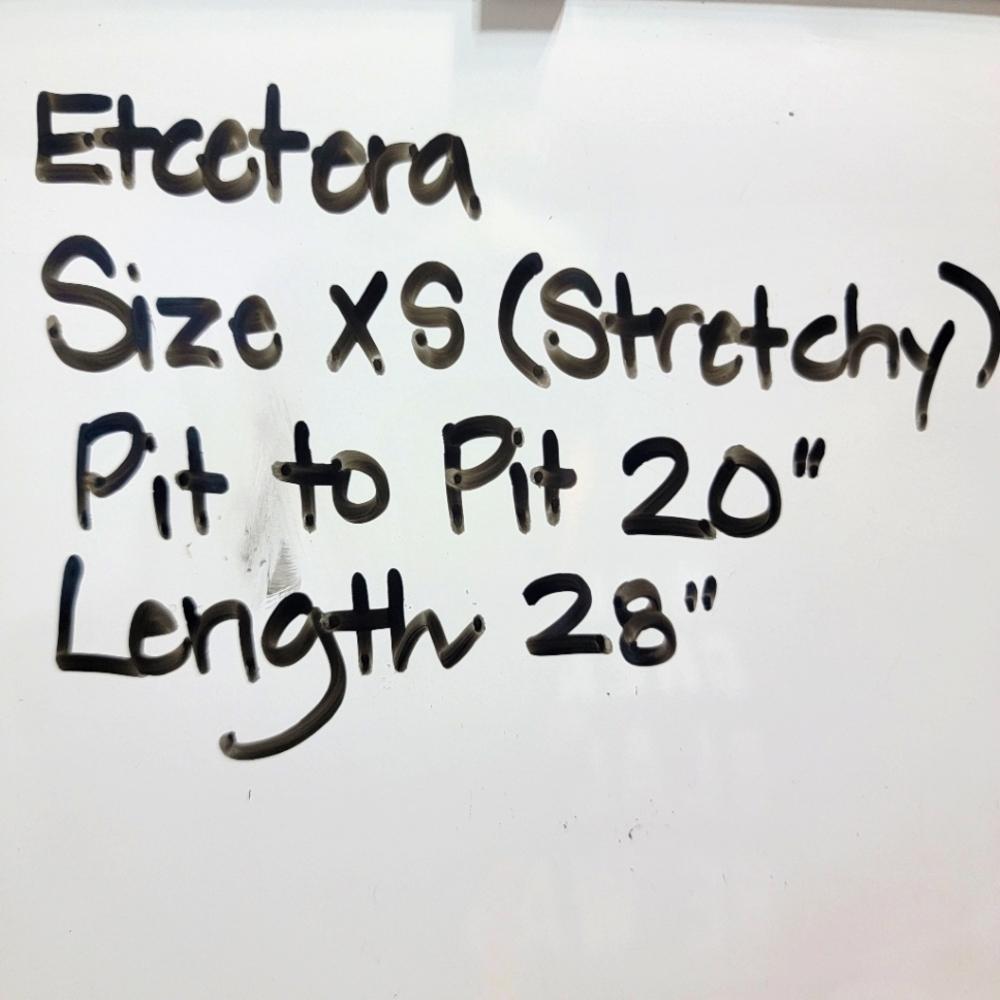 Etcetera
Size XS (Stretchy)
Pit to Pit 20"
Length 28"